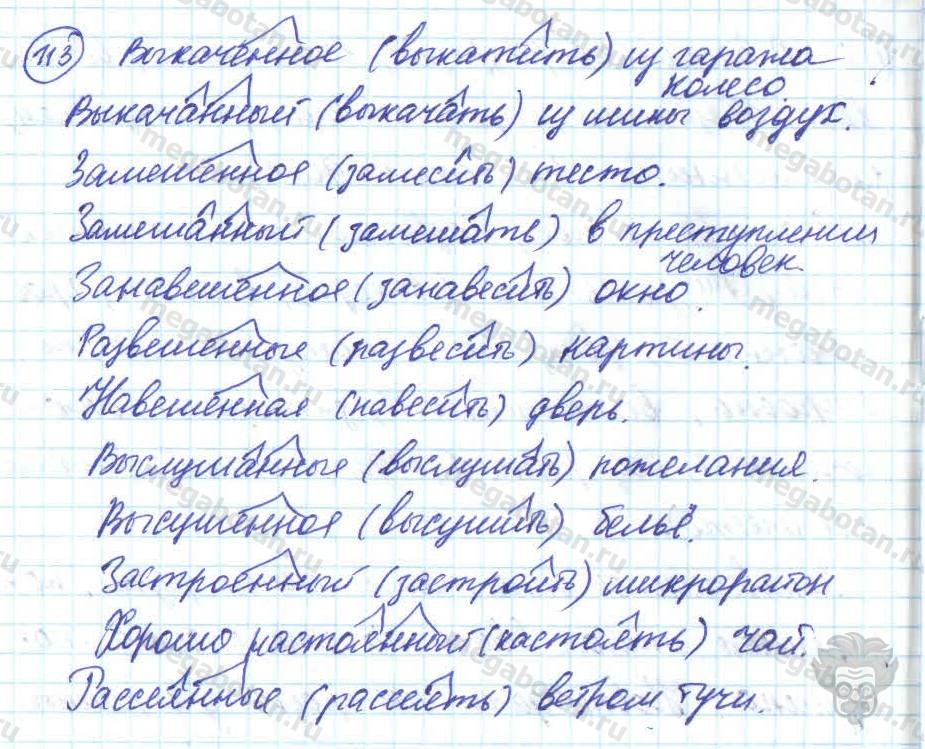 113 Выкаченное (выкатить) из гаража
колесо.
Выкачанный (выкачать) из шины воздух.
Замешенное (замесить) тесто.
Замешанный (замешать) в преступлении
человек
Занавешенное (занавесить) окно.
Развешенные (развесить) картины.
Навешенная (навесить) дверь.
Выслушанные (выслушать) пожелания.
Высушенное (высушить) бельё.
Застроенный (застроить) микрорайон
Хорошо настоянный (настоять) чай.
Рассеянные (рассеять) ветром тучи.
megabotan.ru